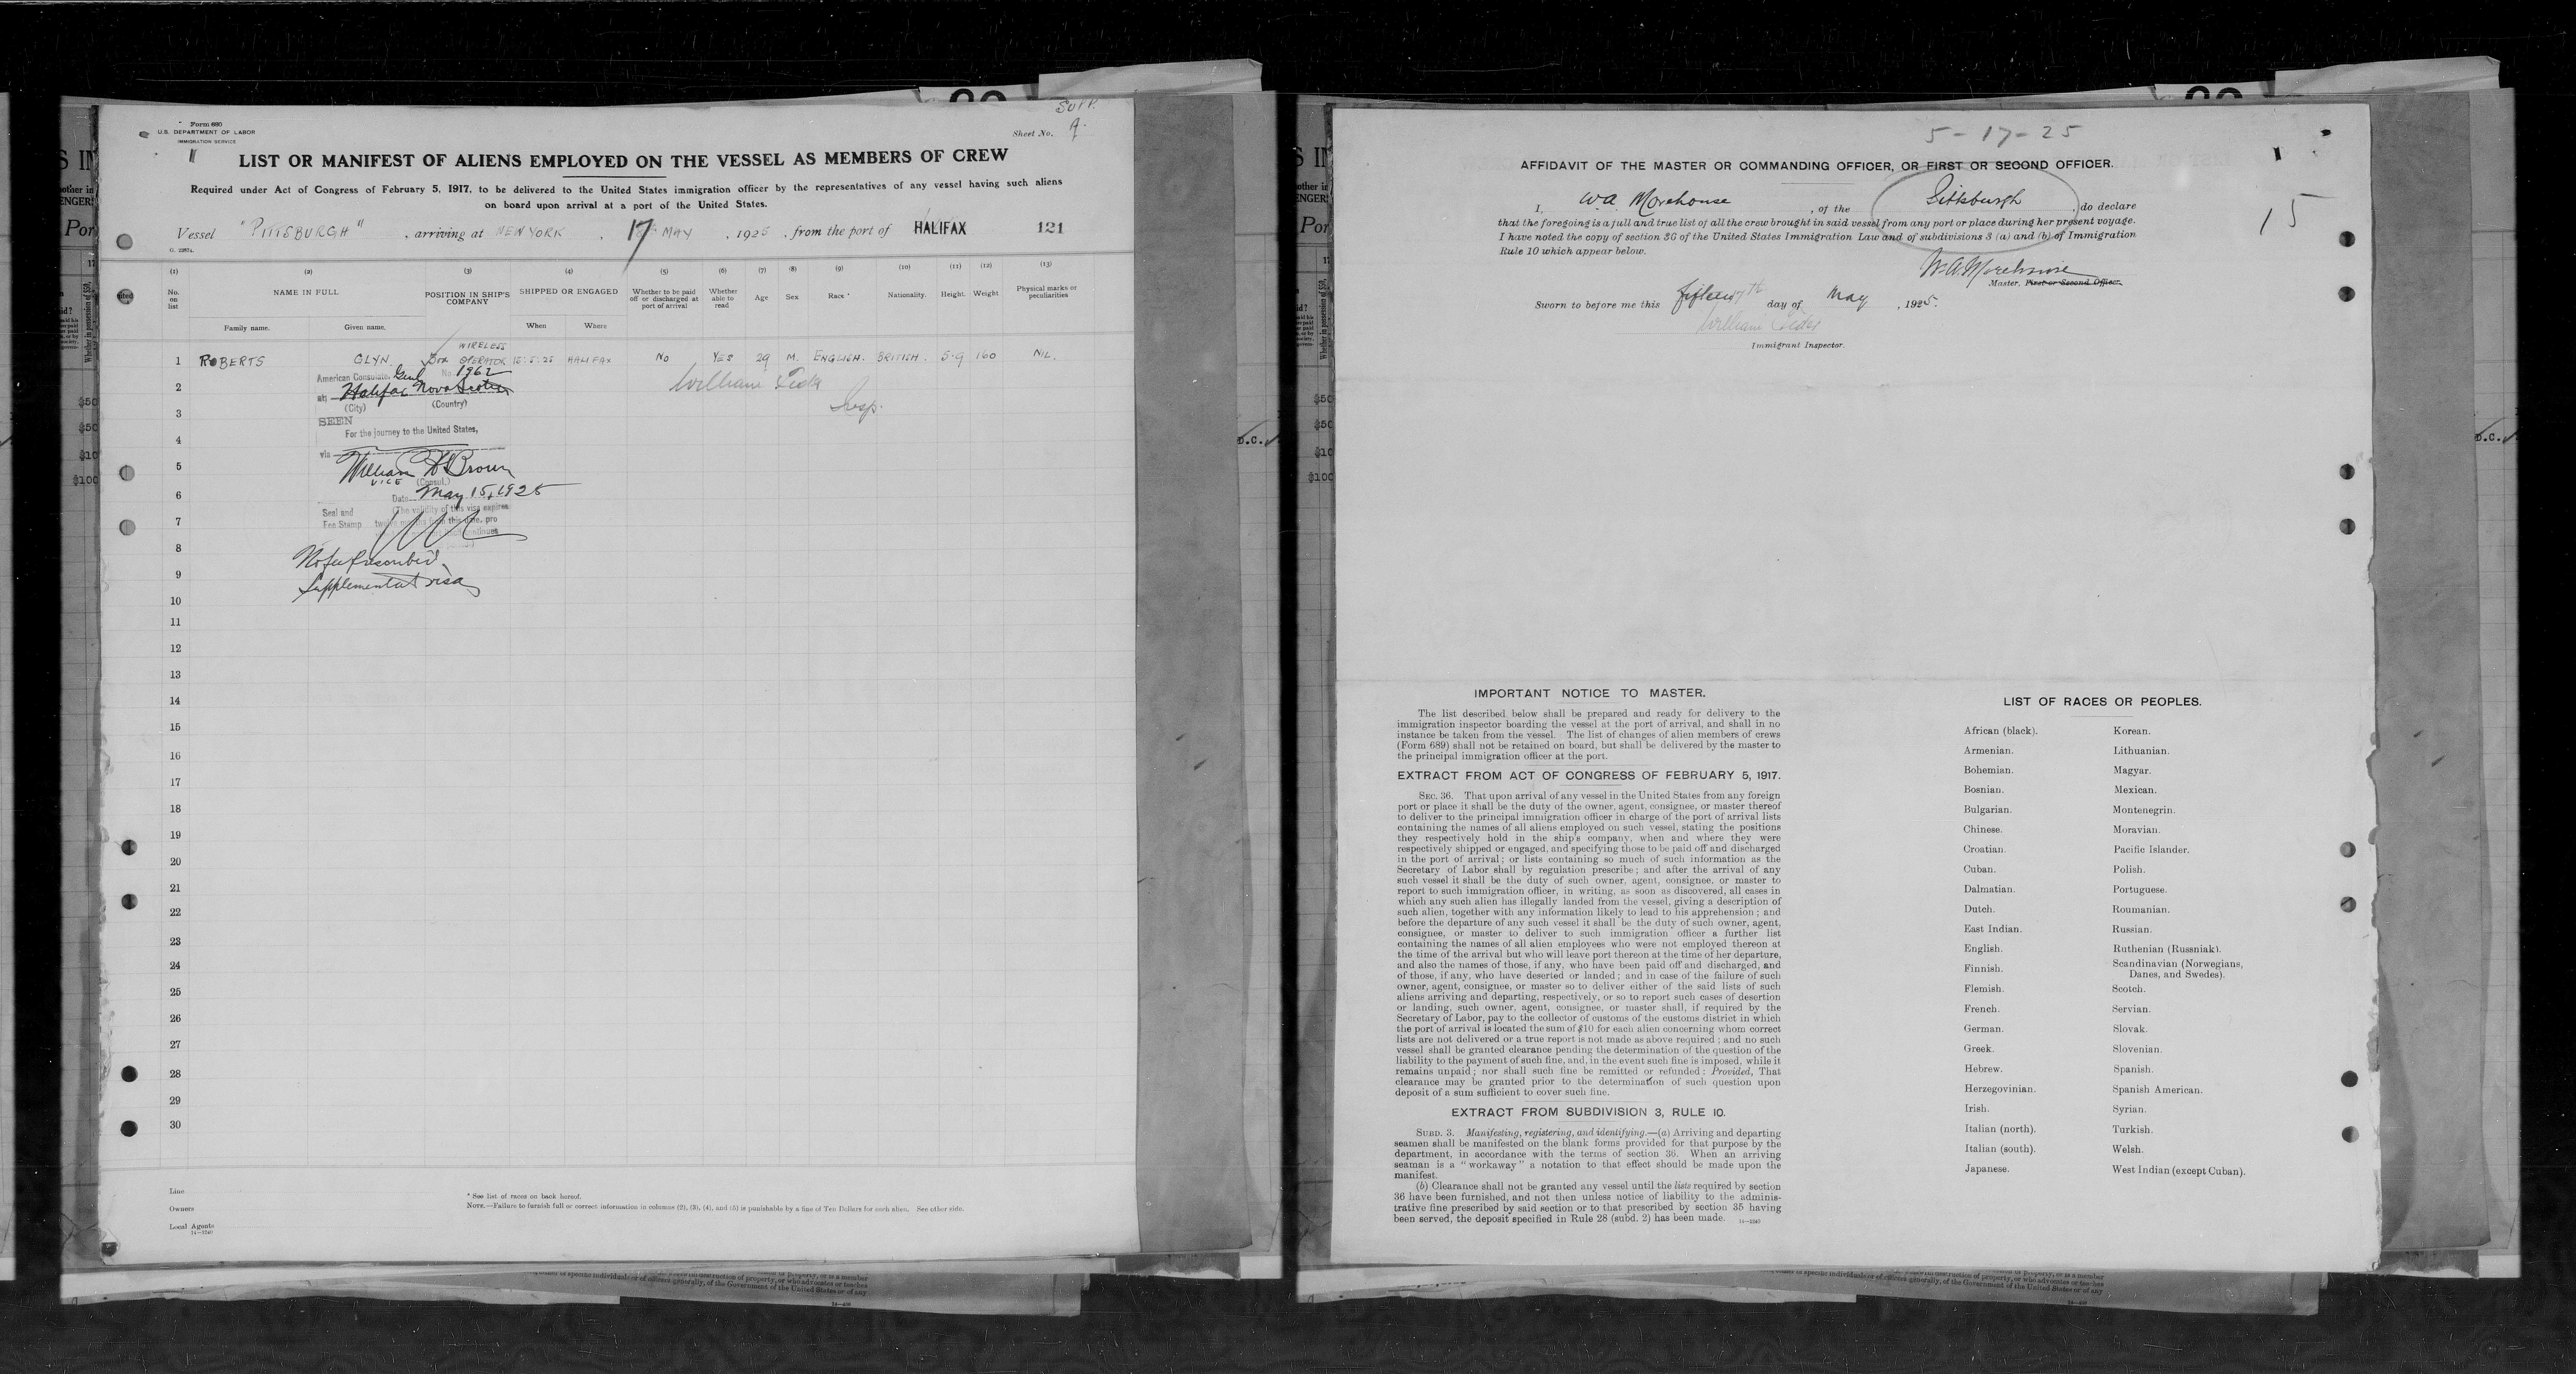 Form 680
U.S. DEPARTMENT OF LABOR
IMMIGRATION SERVICE
SUPP.
Sheet No. A.
LIST OR MANIFEST OF ALIENS EMPLOYED ON THE VESSEL AS MEMBERS OF CREW
Required under Act of Congress of February 5, 1917, to be delivered to the United States immigration officer by the representatives of any vessel having such aliens
on board upon arrival at a port of the United States.
Vessel "PITTSBURGH", arriving at NEW YORK, 17 MAY, 1925, from the port of HALIFAX 121
(1) (2) (3) (4) (5) (6) (7) (8) (9) (10) (11) (12) (13)
No. on list
NAME IN FULL
Family name. Given name.
POSITION IN SHIP'S COMPANY
SHIPPED OR ENGAGED
When Where
Whether to be paid off or discharged at port of arrival
Whether able to read
Age
Sex
Race *
Nationality.
Height.
Weight
Physical marks or peculiarities
WIRELESS
1 ROBERTS GLYN OPERATOR 15:5:25 HALIFAX NO YES 29 M. ENGLISH. BRITISH. 5-9 160 NIL.
American Consulate. Genl No. 1962
2 at Halifax Nova Scotia William
(City) (Country)
3 Insp.
SEEN
For the journey to the United States,
4
via
5 William Brown
VICE (Consul.)
6 Date May 15, 1925
Seal and (The validity of this visa expires
7 Fee Stamp twelve months from this date, pro
8 No fee prescribed.
9 Supplemental visa
10
11
12
13
14
15
16
17
18
19
20
21
22
23
24
25
26
27
28
29
30
Line
Owners
Local Agents
14—1240
* See list of races on back hereof.
NOTE.—Failure to furnish full or correct information in columns (2), (3), (4), and (5) is punishable by a fine of Ten Dollars for each alien. See other side.
5-17-25
AFFIDAVIT OF THE MASTER OR COMMANDING OFFICER, OR FIRST OR SECOND OFFICER.
15
I, W.A. Morehouse, of the Pittsburgh, do declare
that the foregoing is a full and true list of all the crew brought in said vessel from any port or place during her present voyage.
I have noted the copy of section 36 of the United States Immigration Law and of subdivisions 3 (a) and (b) of Immigration
Rule 10 which appear below.
W.A. Morehouse
Master. First or Second Officer.
Sworn to before me this fifteen 17th day of May, 1925.
William
Immigrant Inspector.
IMPORTANT NOTICE TO MASTER.
The list described below shall be prepared and ready for delivery to the
immigration inspector boarding the vessel at the port of arrival, and shall in no
instance be taken from the vessel. The list of changes of alien members of crews
(Form 689) shall not be retained on board, but shall be delivered by the master to
the principal immigration officer at the port.
EXTRACT FROM ACT OF CONGRESS OF FEBRUARY 5, 1917.
SEC. 36. That upon arrival of any vessel in the United States from any foreign
port or place it shall be the duty of the owner, agent, consignee, or master thereof
to deliver to the principal immigration officer in charge of the port of arrival lists
containing the names of all aliens employed on such vessel, stating the positions
they respectively hold in the ship's company, when and where they were
respectively shipped or engaged, and specifying those to be paid off and discharged
in the port of arrival; or lists containing so much of such information as the
Secretary of Labor shall by regulation prescribe; and after the arrival of any
such vessel it shall be the duty of such owner, agent, consignee, or master to
report to such immigration officer, in writing, as soon as discovered, all cases in
which any such alien has illegally landed from the vessel, giving a description of
such alien, together with any information likely to lead to his apprehension; and
before the departure of any such vessel it shall be the duty of such owner, agent,
consignee, or master to deliver to such immigration officer a further list
containing the names of all alien employees who were not employed thereon at
the time of the arrival but who will leave port thereon at the time of her departure,
and also the names of those, if any, who have been paid off and discharged, and
of those, if any, who have deserted or landed; and in case of the failure of such
owner, agent, consignee, or master so to deliver either of the said lists of such
aliens arriving and departing, respectively, or so to report such cases of desertion
or landing, such owner, agent, consignee, or master shall, if required by the
Secretary of Labor, pay to the collector of customs of the customs district in which
the port of arrival is located the sum of $10 for each alien concerning whom correct
lists are not delivered or a true report is not made as above required; and no such
vessel shall be granted clearance pending the determination of the question of the
liability to the payment of such fine, and, in the event such fine is imposed, while it
remains unpaid; nor shall such fine be remitted or refunded: Provided, That
clearance may be granted prior to the determination of such question upon
deposit of a sum sufficient to cover such fine.
EXTRACT FROM SUBDIVISION 3, RULE 10.
SUBD. 3. Manifesting, registering, and identifying.—(a) Arriving and departing
seamen shall be manifested on the blank forms provided for that purpose by the
department, in accordance with the terms of section 36. When an arriving
seaman is a "workaway" a notation to that effect should be made upon the
manifest.
(b) Clearance shall not be granted any vessel until the lists required by section
36 have been furnished, and not then unless notice of liability to the adminis-
trative fine prescribed by said section or to that prescribed by section 35 having
been served, the deposit specified in Rule 28 (subd. 2) has been made. 14—1240
LIST OF RACES OR PEOPLES.
African (black). Korean.
Armenian. Lithuanian.
Bohemian. Magyar.
Bosnian. Mexican.
Bulgarian. Montenegrin.
Chinese. Moravian.
Croatian. Pacific Islander.
Cuban. Polish.
Dalmatian. Portuguese.
Dutch. Roumanian.
East Indian. Russian.
English. Ruthenian (Russniak).
Finnish. Scandinavian (Norwegians,
Danes, and Swedes).
Flemish. Scotch.
French. Servian.
German. Slovak.
Greek. Slovenian.
Hebrew. Spanish.
Herzegovinian. Spanish American.
Irish. Syrian.
Italian (north). Turkish.
Italian (south). Welsh.
Japanese. West Indian (except Cuban).